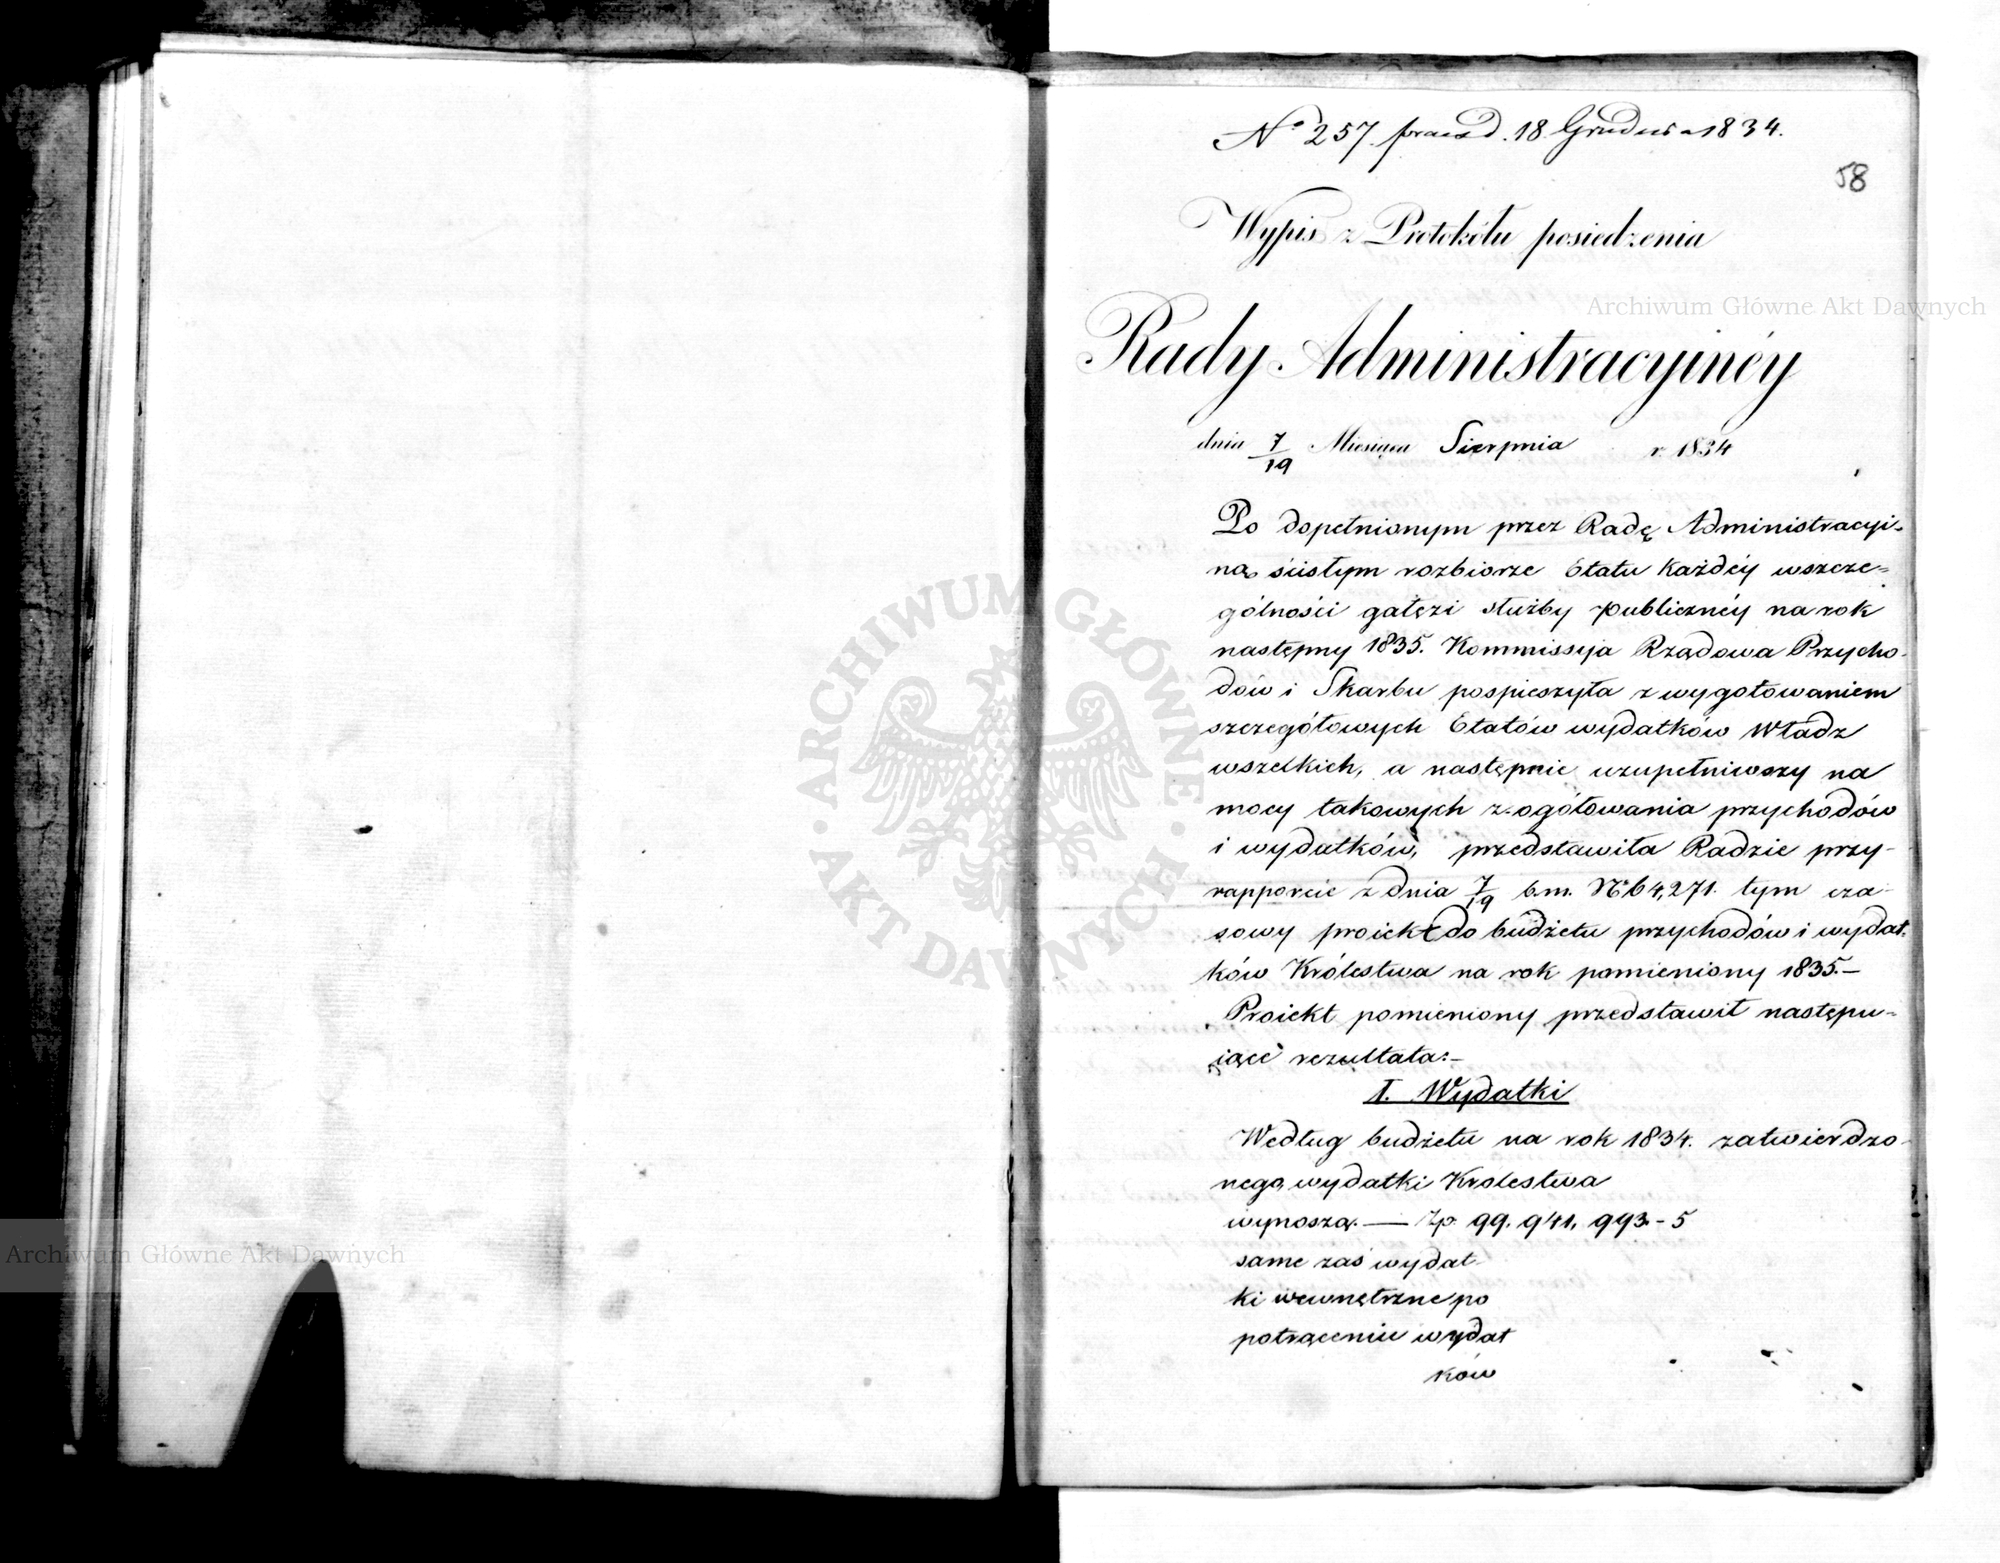 N° 257 praesd. 18 Grudnia 1834.
58
Wypis z Protokółu posiedzenia
Rady Administracyinéy
dnia 7/19 Miesiąca Sierpnia r. 1834
Po dopełnionym przez Radę Administracyi-
ną ścisłym rozbiorze Etatu każdéy wszcze=
gólności gałęzi służby publicznéy na rok
następny 1835. Kommissyja Rządowa Przycho-
dów i Skarbu pospieszyła z wygotowaniem
szczegółowych Etatów wydatków Władz
wszelkich, a następnie uzupełniwszy na
mocy takowych z-ogółowania przychodów
i wydatków, przedstawiła Radzie przy-
rapporcie z dnia 7/19 b.m. N° 64,271. tym cza-
sowy proiekt do budżetu przychodów i wydat-
ków Królestwa na rok pomieniony 1835.—
Proiekt pomieniony przedstawił następu=
iące rezultata:—
I. Wydatki
Według budżetu na rok 1834. zatwierdzo-
nego, wydatki Krolestwa
wynoszą. — Zp. 99. 941. 993.-5
same zaś wydat-
ki wewnętrzne po
potrąceniu wydat
ków
Archiwum Główne Akt Dawnych
Archiwum Główne Akt Dawnych
ARCHIWUM GŁÓWNE · AKT DAWNYCH ·